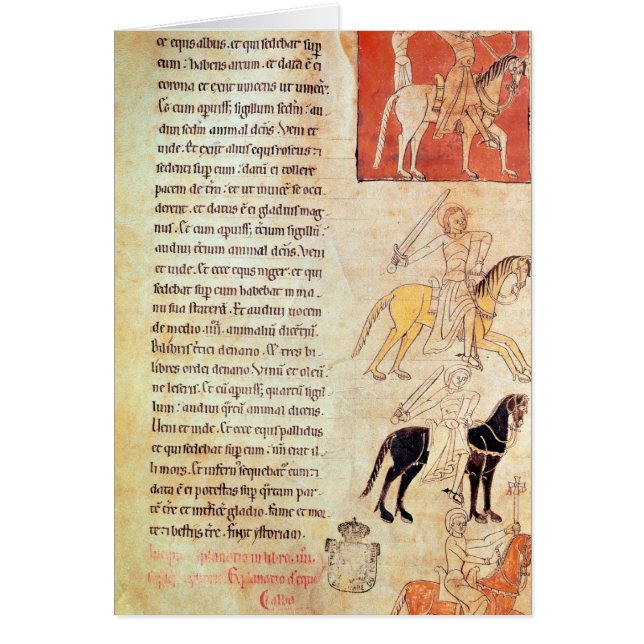 ce equis albus. et qui sedebat sup
eum: habens arcum. et data ē ei
corona et exiit uincens ut uincer&.
Et cum apuiss& sigillum sedm̄: au-
diui sedm̄ animal dcēns. Veni et
uide. Et exiit alius equs roseus: 7
sedenti sup eum: datū ei tollere
pacem de tr̄a: et ut inuicē se occi
derent. et datus ē ei gladius mag
nus. Et cum apuiss& tc̄ium sigillū:
audiui tc̄ium animal dcēns. Veni
et uide. Et ecce equs niger: et qui
sedebat sup eum habebat in ma
nu sua staterā. Et audiui uocem
de medio .iiii. animaliū dicētiū.
Bilibris tc̄ici denario. Et tres bi
libres ordei denario. Vinū et oleū
ne leseris. Et cū apuiss& quartū sigil
lum: audiui q̄rtū animal dicens.
Veni et uide. Et ecce equs pallidus
et qui sedebat sup eum: nm̄ erat il
li mors. Et infernꝰ sequebat᷑ eum: 7
data ē ei potestas sup q̄rtam par
tē tr̄e et inficē gladio. fame et mor
te: 7 bestiis tr̄e. finit ystoriam.
Incipit explanatio in libro. iiii.
Explanatio d' equo
albo